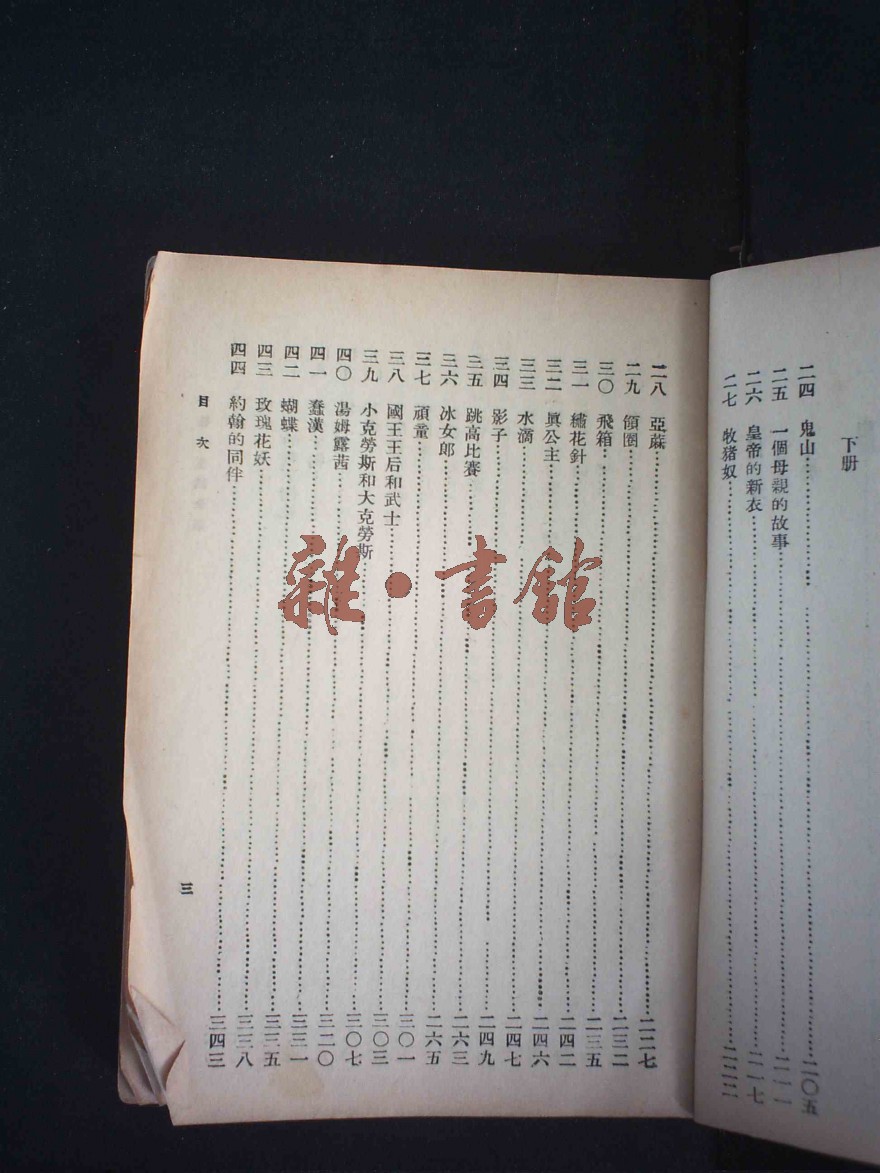 下册
二四 鬼山 二〇五
二五 一個母親的故事 二一一
二六 皇帝的新衣 二一七
二七 牧猪奴 二二二
二八 亞蔴 二二七
二九 領圈 二三二
三〇 飛箱 二三五
三一 繡花針 二四二
三二 眞公主 二四六
三三 水滴 二四七
三四 影子 二四九
三五 跳高比賽 二六三
三六 冰女郎 二六五
三七 頑童 三〇一
三八 國王王后和武士 三〇三
三九 小克勞斯和大克勞斯 三〇七
四〇 湯姆露茜 三二〇
四一 蠢漢 三三一
四二 蝴蝶 三三五
四三 玫瑰花妖 三三八
四四 約翰的同伴 三四三
目次
三
雜·書館